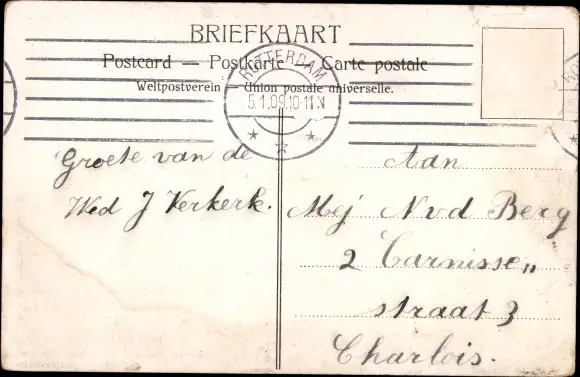 BRIEFKAART
Postcard — Postkarte — Carte postale
Weltpostverein — Union postale universelle.
ROTTERDAM
5.1.09.10-11 N
Groete van de
Wed J Verkerk.
Aan
Mej N v d Berg
2 Carnisse„
straat 3
Charlois.